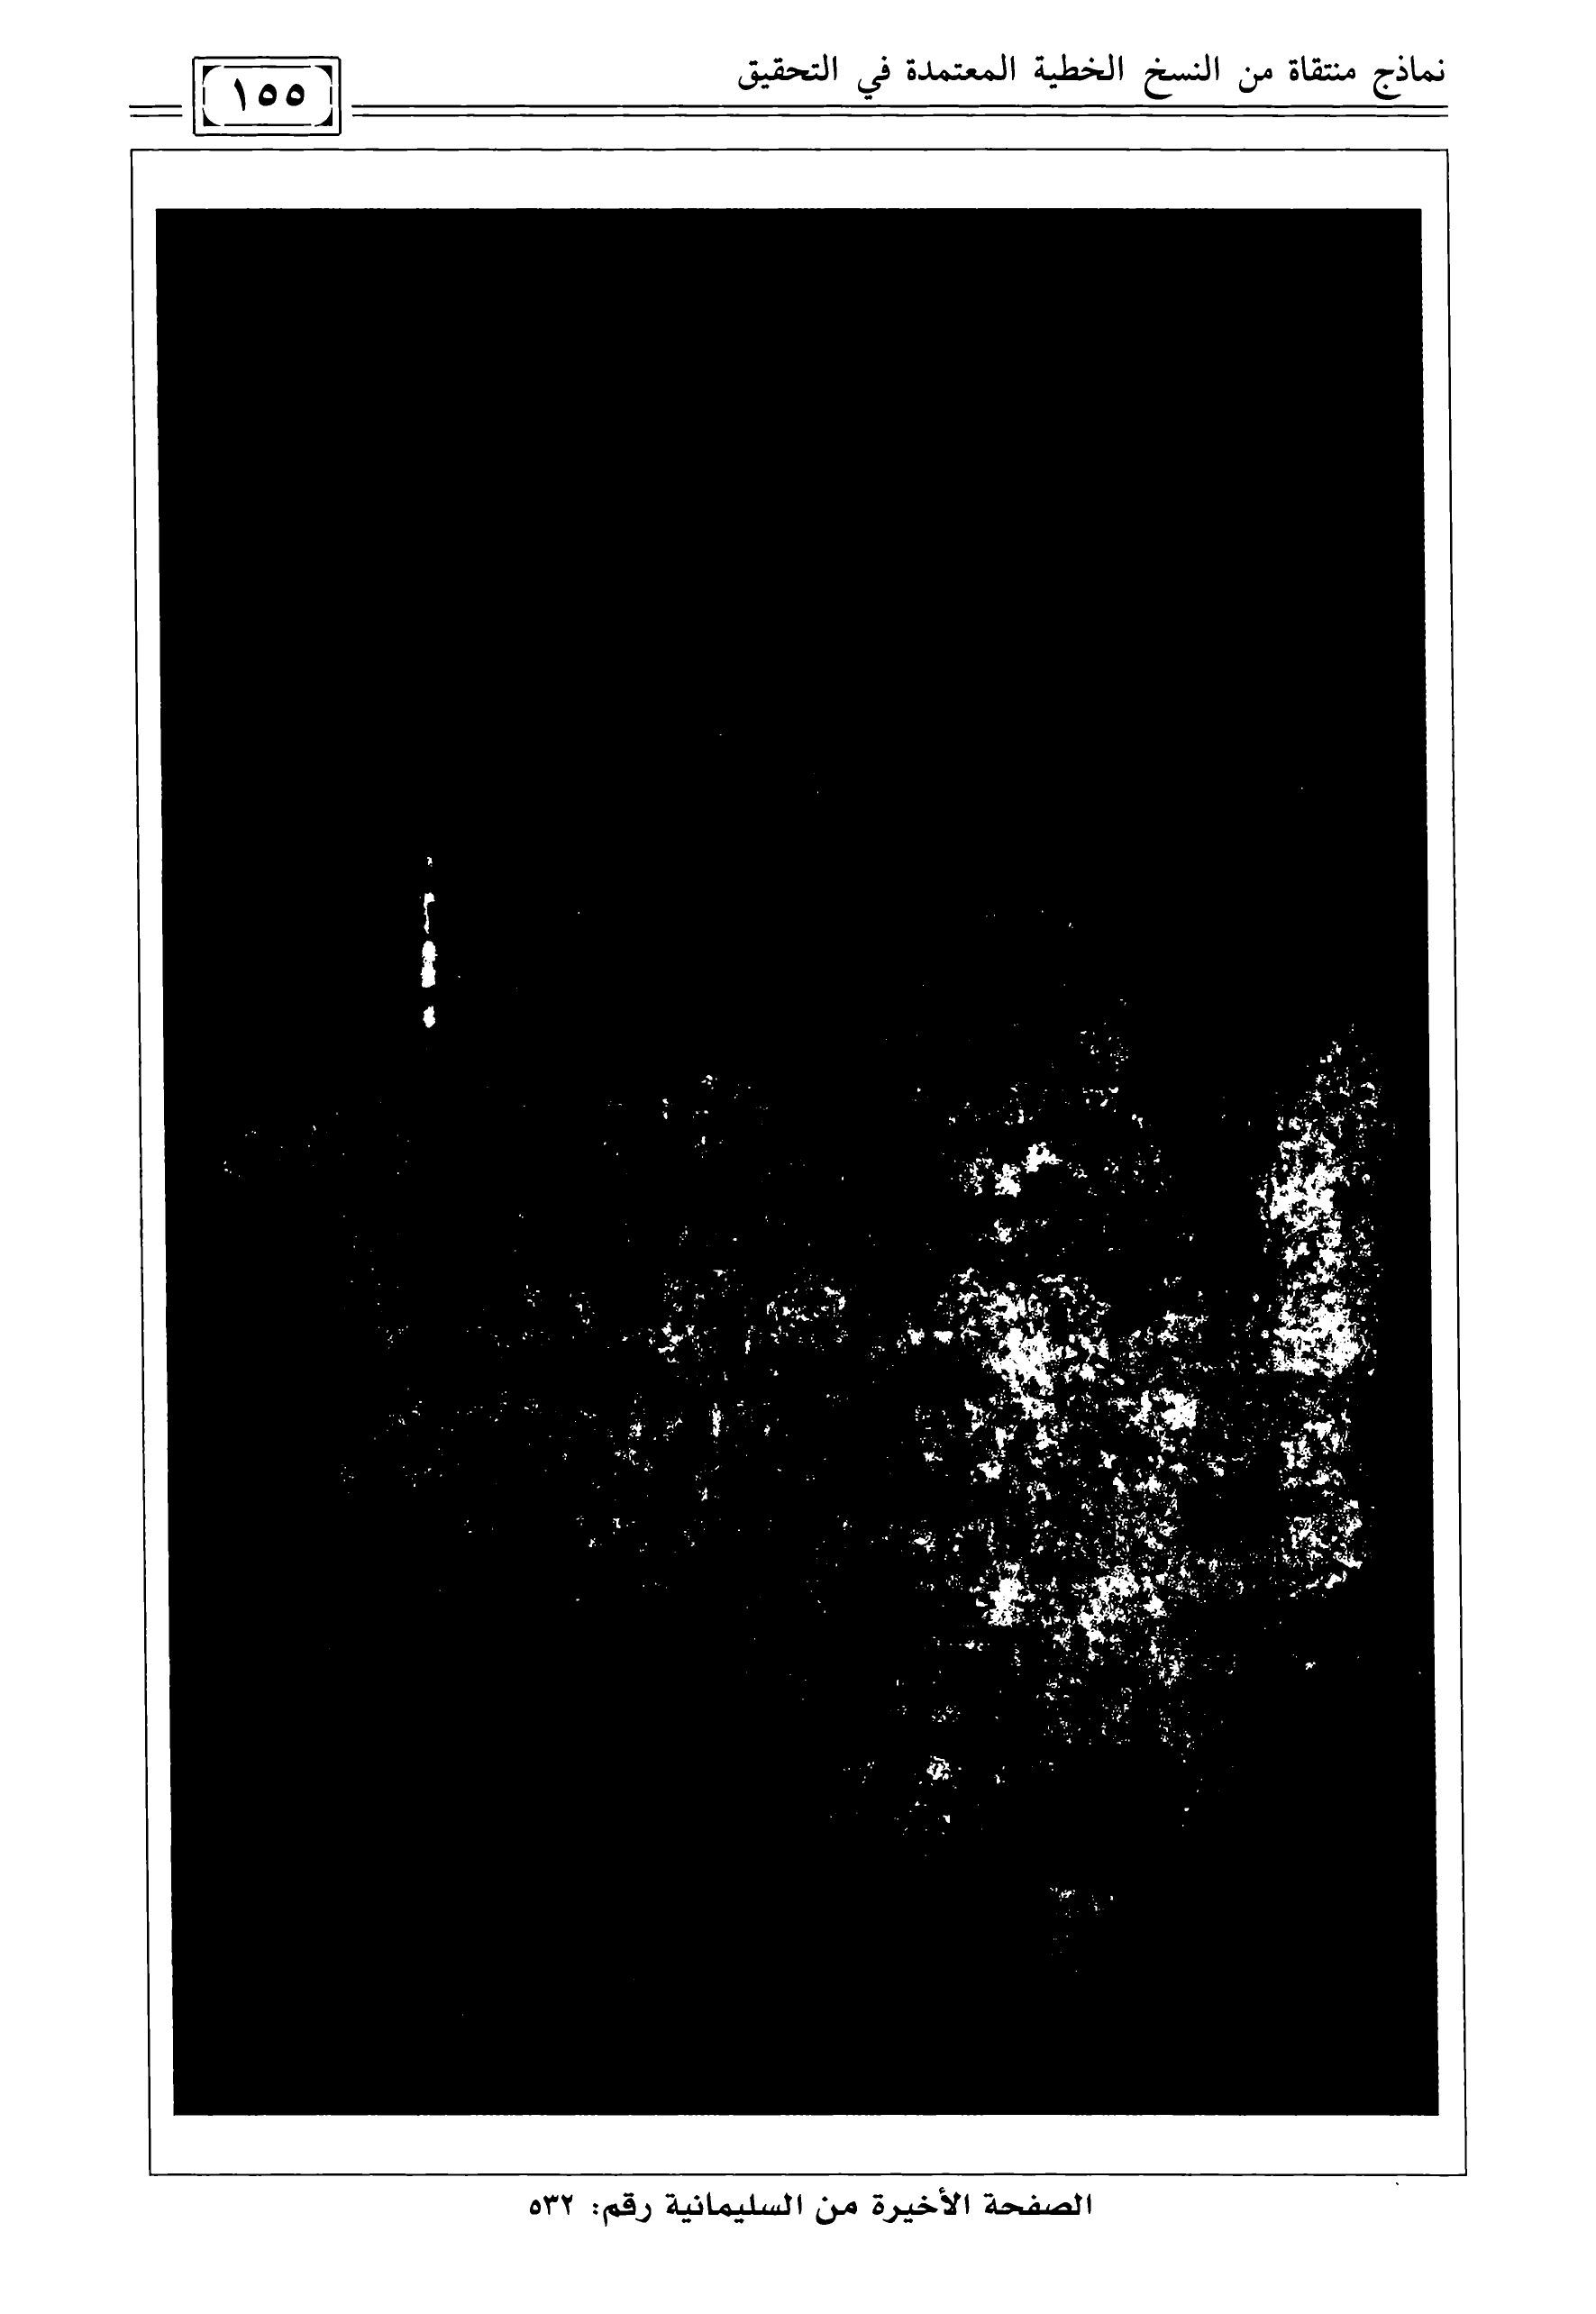 نماذج منتقاة من النسخ الخطية المعتمدة في التحقيق
١٥٥
الصفحة الأخيرة من السليمانية رقم: ٥٣٢